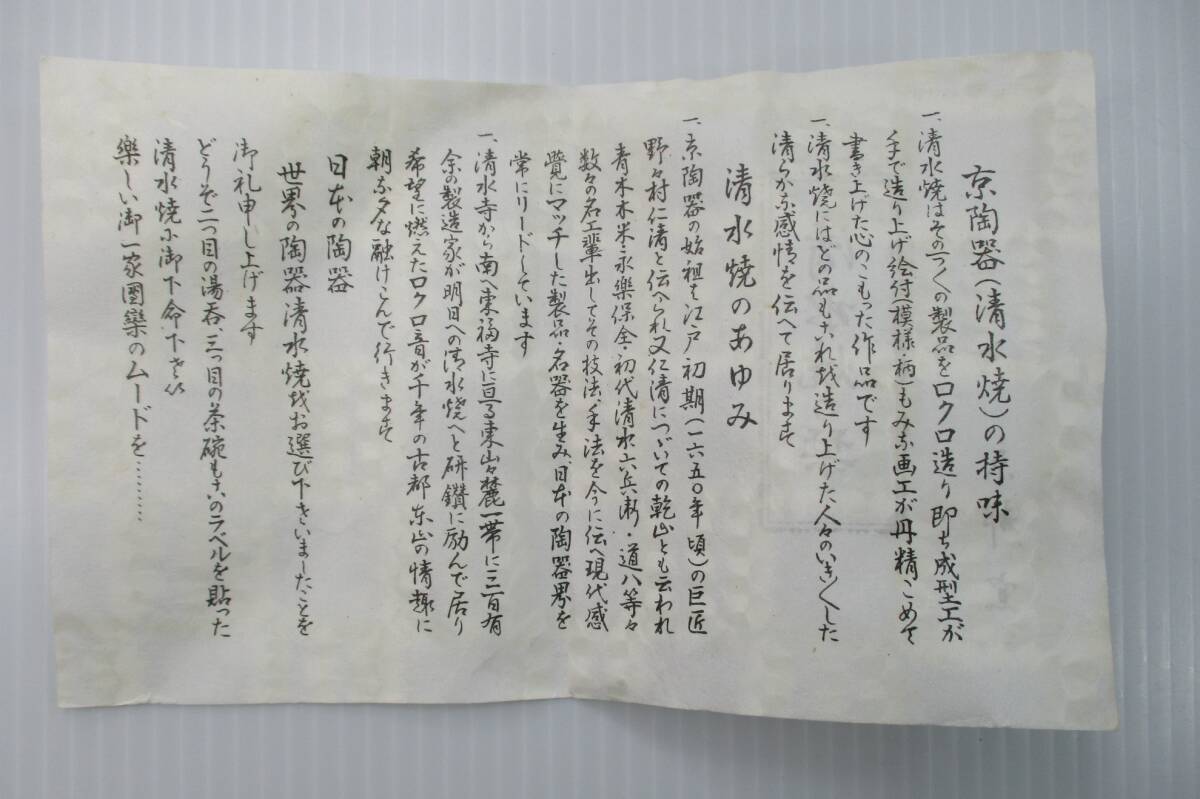 京陶器(清水焼)の持味
一、清水焼はその一つ〱の製品をロクロ造り即ち成型工が
手で造り上げ絵付(模様柄)もみな画工が丹精こめて
書き上げた心のこもった作品です
一、清水焼にはどの品もこれを造り上げた人々のいき〱した
清らかな感情を伝へて居ります
清水焼のあゆみ
一、京陶器の始祖は江戸初期(一六五〇年頃)の巨匠
野々村仁清と伝へられ又仁清についでの乾山とも云われ
青木木米・永楽保全・初代清水六兵衛・道八等々
数々の名工輩出してその技法、手法を今に伝へ現代感
覺にマッチした製品・名器を生み日本の陶器界を
常にリードしています
一、清水寺から南へ東福寺に亘る東山々麓一帯に三百有
余の製造家が明日への清水焼へと研鑽に励んで居り
希望に燃えたロクロ音が千年の古都東山の情趣に
朝な夕な融けこんで行きます
日本の陶器
世界の陶器清水焼をお選び下さいましたことを
御礼申し上げます
どうぞ二つ目の湯呑、三つ目の茶碗もこのラベルを貼った
清水焼に御下命下さい
楽しい御一家團欒のムードを………